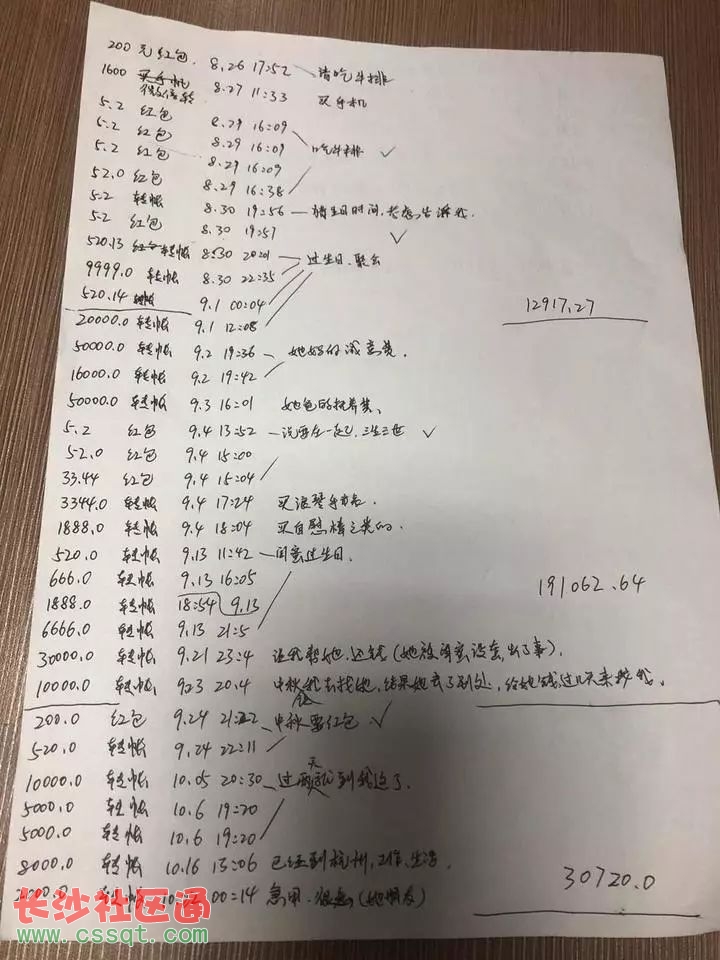 200 元红包. 8.26 17:52 请吃牛排
1600 买手机 8.27 11:33 买手机
微信转
5.2 红包 8.29 16:09
5.2 红包 8.29 16:09 吃牛排 ✓
5.2 红包 8.29 16:09
52.0 红包 8.29 16:38
5.2 转帐 8.30 19:56 生日时间,
5.2 红包 8.30 19:57 ✓
520.13 红包 转帐 8.30 20:01 过生日、聚会
9999.0 转帐 8.30 22:35
520.14 转帐 9.1 00:04 12917.27
20000.0 转帐 9.1 12:08
50000.0 转帐 9.2 19:36 她妈的
16000.0 转帐 9.2 19:42
50000.0 转帐 9.3 16:01 她爸的抚养费、
5.2 红包 9.4 13:52 说要在一起, 三生三世 ✓
52.0 红包 9.4 15:00
33.44 红包 9.4 15:04
3344.0 转帐 9.4 17:24 买浪琴手表.
1888.0 转帐 9.4 18:04 买自慰棒之类的.
520.0 转帐 9.13 11:42 闺蜜过生日.
666.0 9.13 16:05 191062.64
1888.0 转帐 18:54 9.13
6666.0 转帐 9.13 21:5
30000.0 转帐 9.21 23:4 让我帮她, 还钱 (她被闺蜜设套出了事).
10000.0 转帐 9.23 20.4 中秋我去找她, 结果她去了别处, 给她钱过几天来找我.
200.0 红包 9.24 21:22 中秋要红包 ✓
520.0 转帐 9.24 22:11
10000.0 转帐 10.05 20:30 过两天就到我这了.
5000.0 转帐 10.6 19:20
5000.0 转帐 10.6 19:20
8000.0 转帐 10.16 13:06 已经到杭州, 工作、生活. 30720.0
转帐 00:14 急用. (她朋友)
长沙社区通
www.cssqt.com